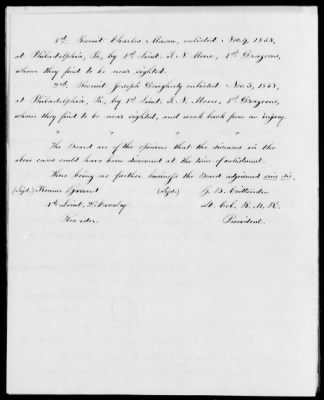 1st. Recruit Charles Mason, enlisted Nov. 9, 1858,
at Philadelphia, Pa, by 1st Lieut. I. N. Moore, 1st Dragoons,
whom they find to be near sighted.
2nd. Recruit Joseph Dougherty enlisted Nov. 3, 1858,
at Philadelphia, Pa, by 1st Lieut. I. N. Moore, 1st Dragoons,
whom they find to be near sighted, and weak back from an injury.
" " "
The Board are of the opinion that the diseases in the
above cases could have been discovered at the time of enlistment.
There being no further business the Board adjourned sine die.
(Sigd.) (Sigd.) G. B. Crittenden
1st Lieut. 2d Cavalry Lt. Col. R. M. R.
Recorder. President.